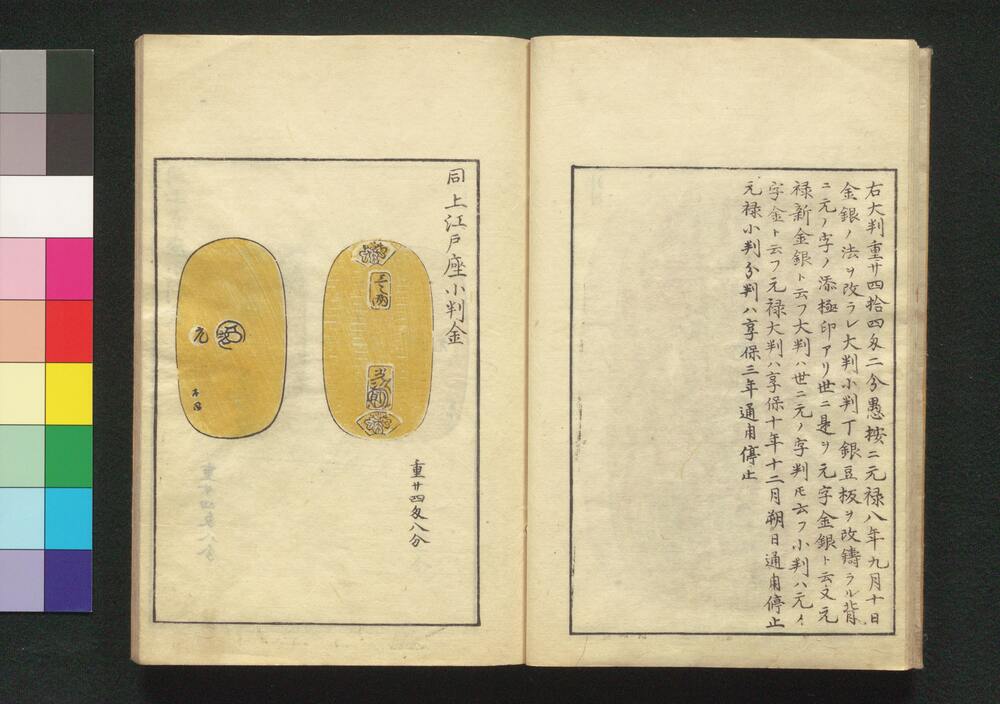 右大判重廿四拾四匁二分愚按ニ元禄八年九月十日
金銀ノ法ヲ改ラレ大判小判丁銀豆板ヲ改鋳ラル背
ニ元ノ字ノ添極印アリ世ニ是ヲ元字金銀ト云又元
禄新金銀ト云フ大判ハ世ニ元ノ字判トモ云フ小判ハ元ノ
字金ト云フ元禄大判ハ享保十年十二月朔日通用停止
元禄小判分判ハ享保三年通用停止
同上江戸座小判金
元
重廿四匁八分